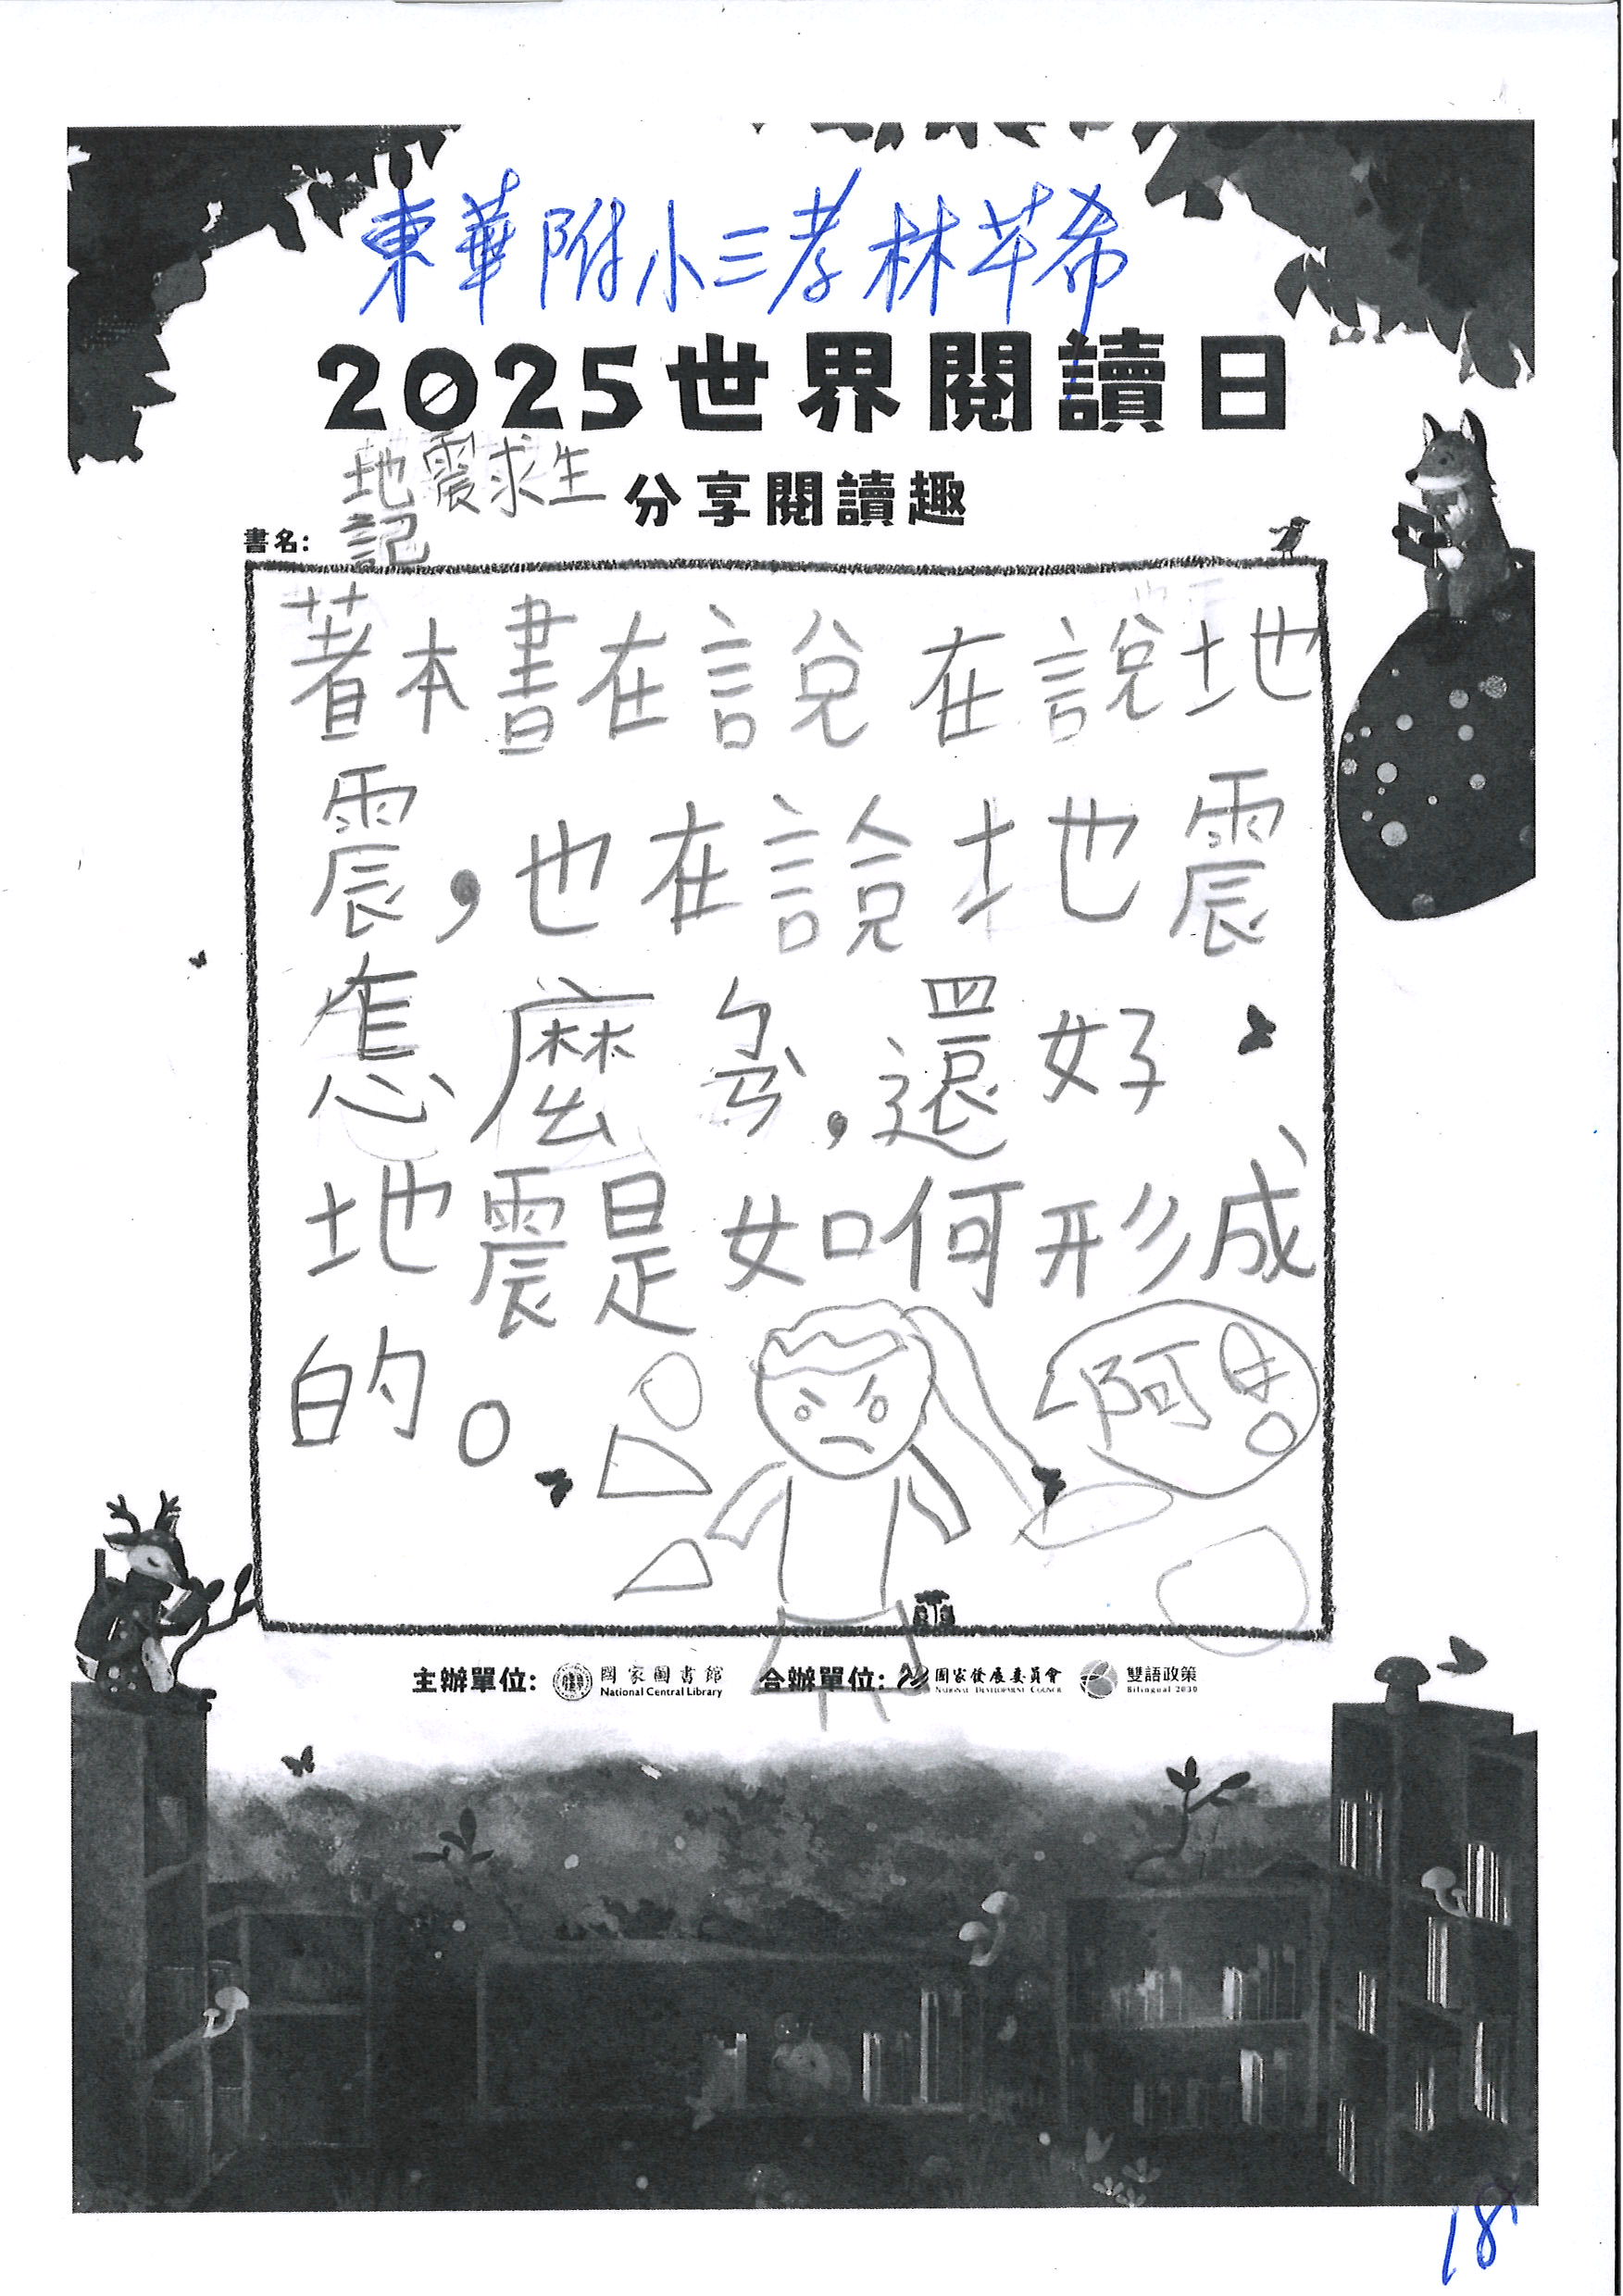 東華附小三孝林芊希
2025世界閱讀日
地震求生
記
分享閱讀趣
書名:
著本書在說 在說地
震,也在說地震
麼 ,還好
地震是如何形成
的。
啊
主辦單位: 國家圖書館 National Central Library 合辦單位: 國家發展委員會 National Development Council 雙語政策 Bilingual 2030
18